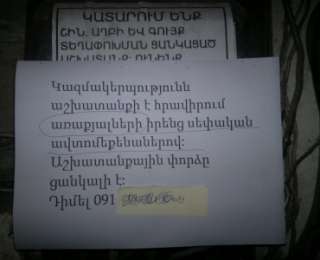 ԿԱՏԱՐՈՒՄ ԵՆՔ
ՇԻՆ. ԱՂԲԻ ԵՎ ԳՈՒՅՔ
ՏԵՂԱՓՈԽՄԱՆ ՑԱՆԿԱՑԱԾ
ԱՇԽԱՏԱՆՔ: ՈՒՆԵՆՔ
Կազմակերպությունն
աշխատանքի է հրավիրում
առաքյալների իրենց սեփական
ավտոմեքենաներով:
Աշխատանքային փորձը
ցանկալի է:
Դիմել 091